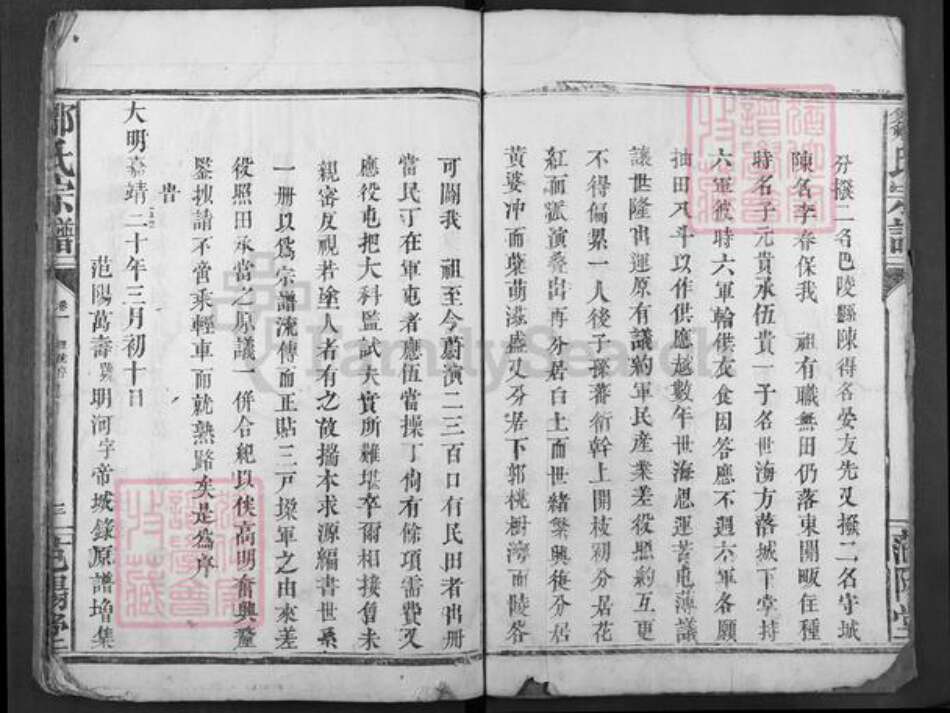 分撥二名巴陵縣陳得名晏友先又撥二名守城
陳名李春保我 祖有職無田仍落東關畈住種
時名子元貴承伍貴一子名世海方落城下堂持
六軍彼時六軍輪供衣食因答應不週六軍各願
抽田八斗以作供應越數年世海思運著屯薄議
讓世隆出運原有議約軍民產業差役照約互更
不得偏累一人後子孫蕃衍幹上開枝初分居花
紅而派演叠出再分居白土而世緒繁興後分居
黃婆冲而葉萌滋盛又分居下郭桃樹灣而陵谷
可闢我 祖至今蔚演二三百口有民田者出册
當民丁在軍屯者應伍當操丁尚有餘項需費又
應役屯把大科監試夫實所難堪卒爾相接曾未
親審反視若塗人者有之故搊本求源編書世系
一册以爲宗譜流傳而正貼三戸操軍之由來差
役照田承當之原議一併合紀以俟高明奮興釐
鑒拟請不啻乘輕車而就熟路矣是爲序
旹
大明嘉靖二十年三月初十日
范陽萬壽 明河字帝城錄原譜增集
鄒氏宗譜
卷一
三
范陽堂